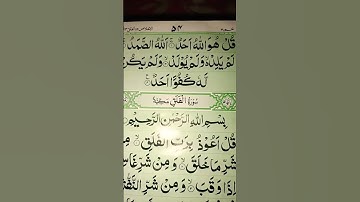 ۵۴
قُلْ هُوَ اللّٰهُ اَحَدٌ ۚ اَللّٰهُ الصَّمَدُ
لَمْ يَلِدْ ۙ وَلَمْ يُوْلَدْ ۙ وَلَمْ يَكُنْ
لَّهٗ كُفُوًا اَحَدٌ
سُوْرَةُ الْفَلَقِ مَكِّيَّةٌ
بِسْمِ اللّٰهِ الرَّحْمٰنِ الرَّحِيْمِ
قُلْ اَعُوْذُ بِرَبِّ الْفَلَقِ ۙ مِنْ
شَرِّ مَا خَلَقَ ۙ وَ مِنْ شَرِّ غَاسِ
اِذَا وَقَبَ ۙ وَ مِنْ شَرِّ النَّفّٰثٰ